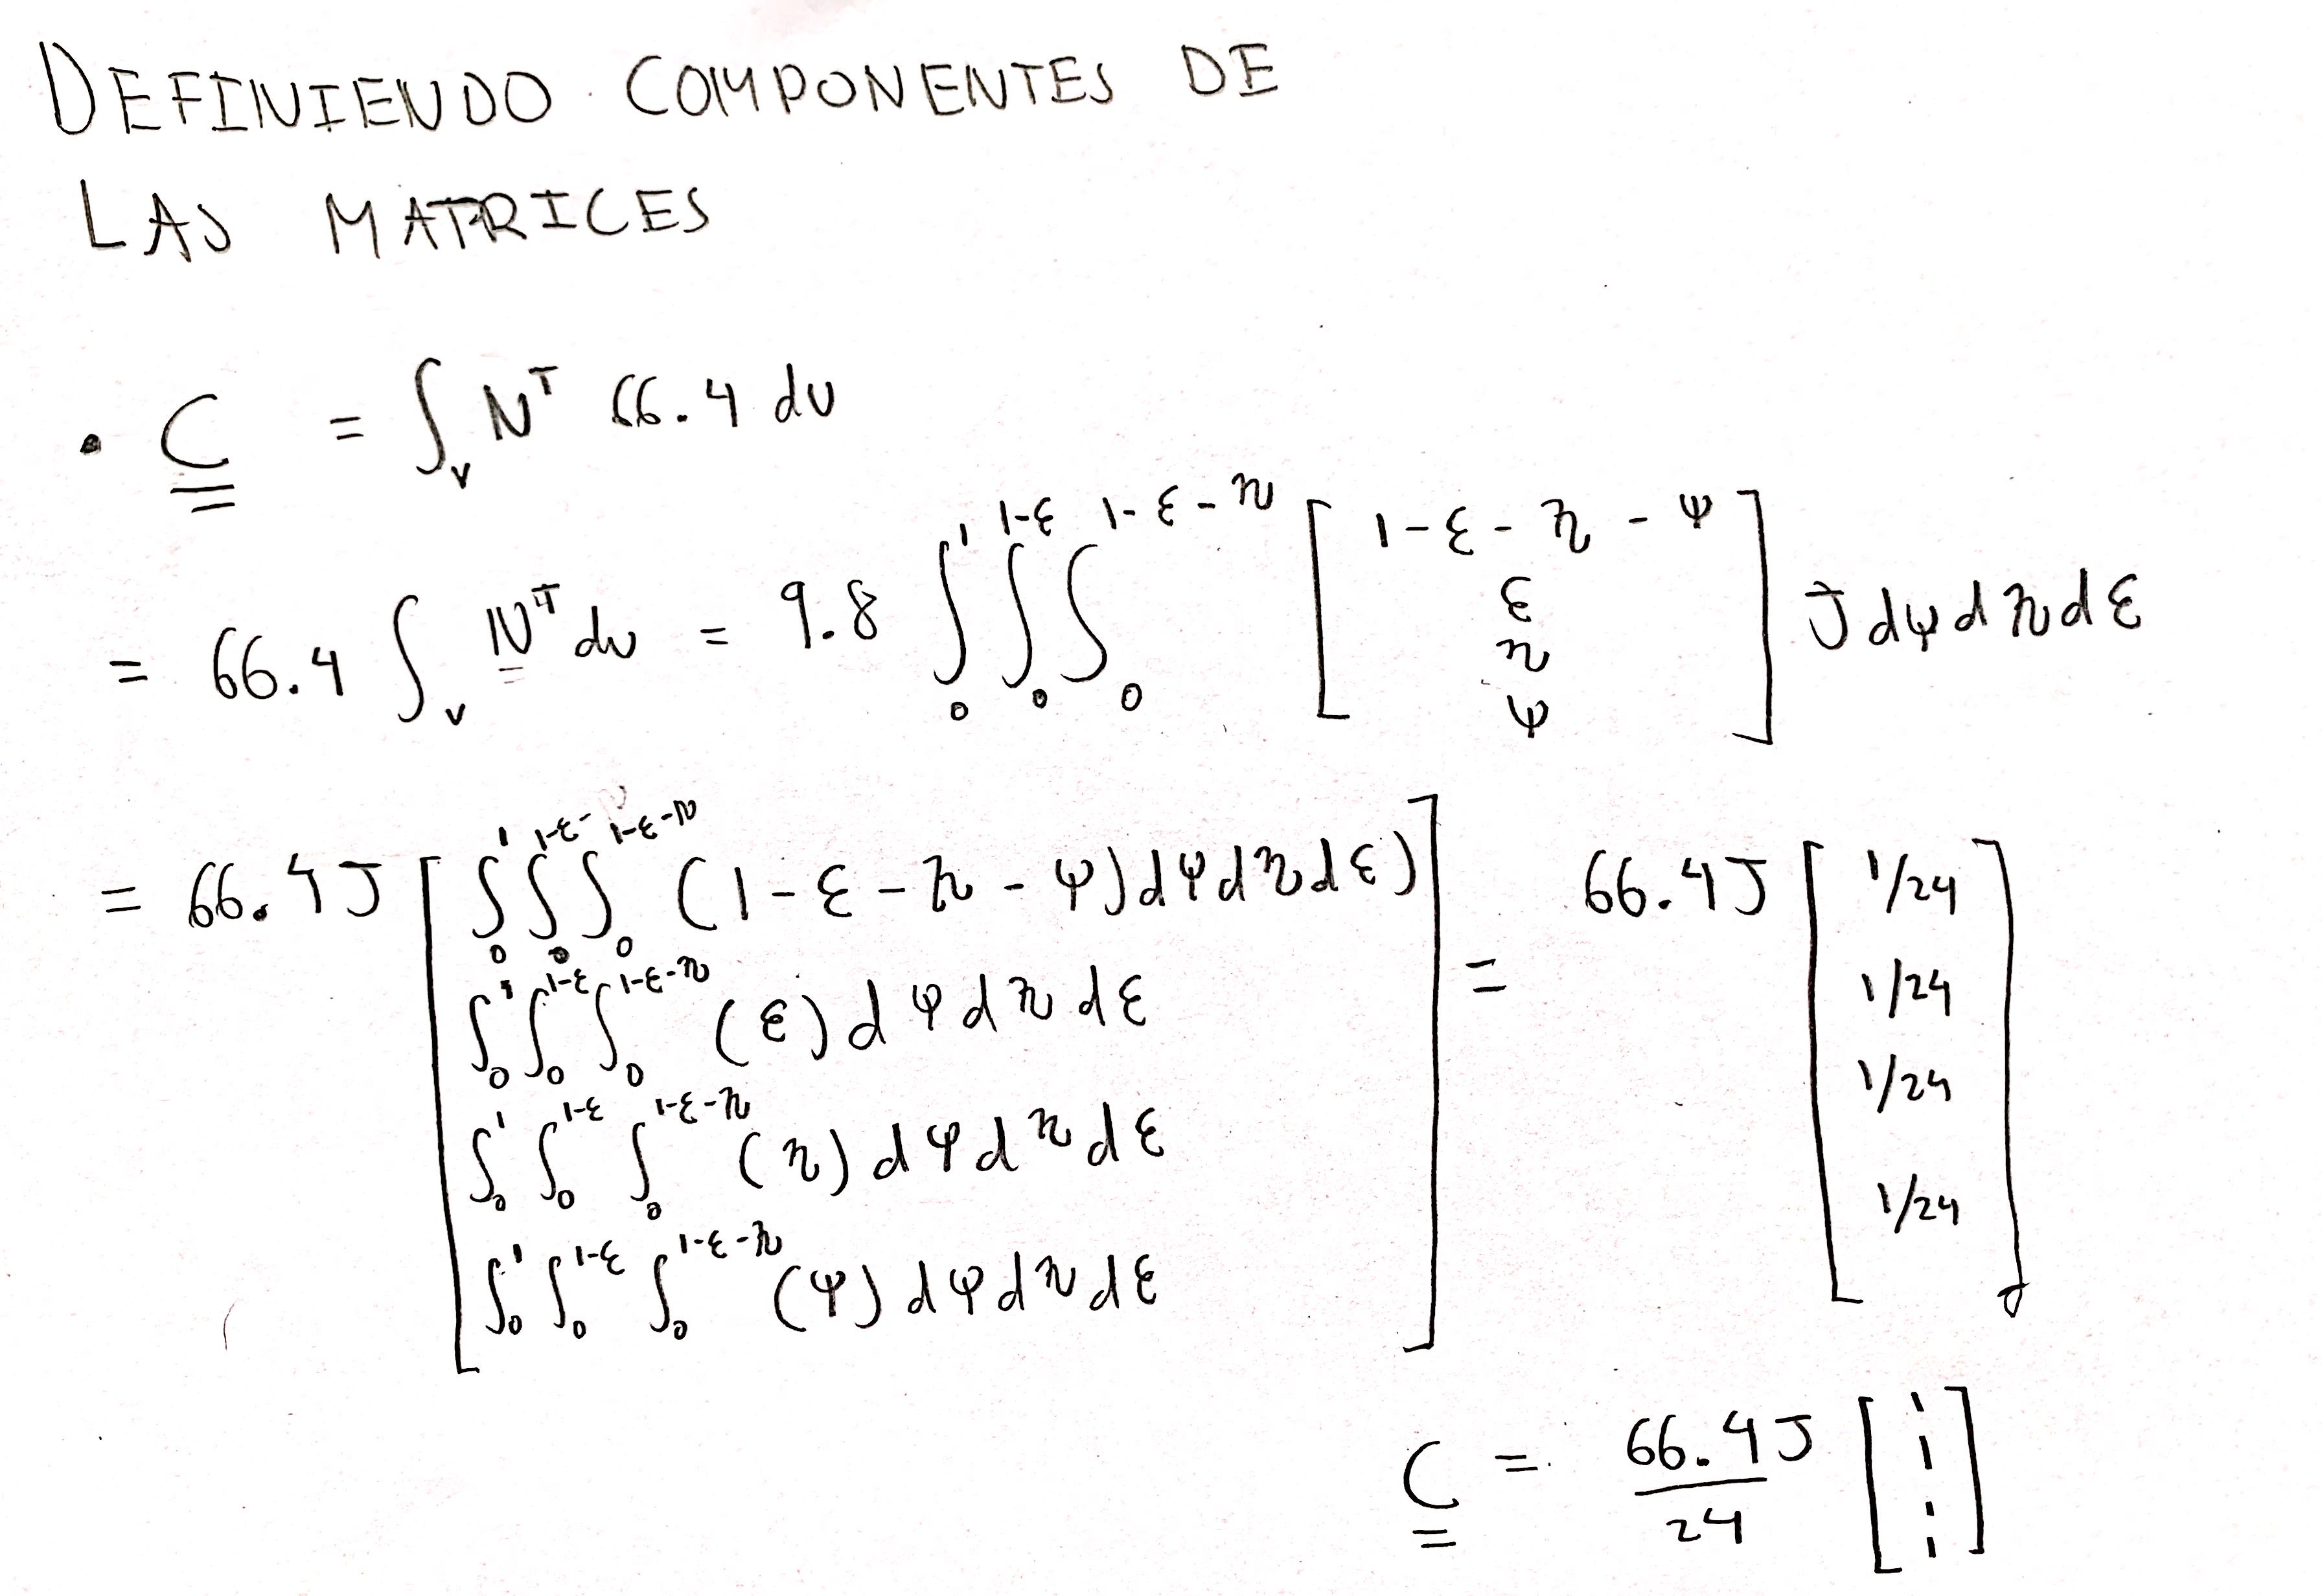 DEFINIENDO COMPONENTES DE
LAS MATRICES
• C = ∫_V N^T 66.4 dv
= 66.4 ∫_V N^T dv = 9.8 ∫_0^1 ∫_0^{1-ε} ∫_0^{1-ε-η} [1-ε-η-ψ; ε; η; ψ] J dψ dη dε
= 66.4J [∫_0^1 ∫_0^{1-ε-} ∫_0^{1-ε-η} (1-ε-η-ψ) dψ dη dε) ] = 66.4J [1/24
∫_0^1 ∫_0^{1-ε} ∫_0^{1-ε-η} (ε) dψ dη dε 1/24
∫_0^1 ∫_0^{1-ε} ∫_0^{1-ε-η} (η) dψ dη dε 1/24
∫_0^1 ∫_0^{1-ε} ∫_0^{1-ε-η} (ψ) dψ dη dε 1/24]
C = 66.4J/24 [1; 1; 1; 1]